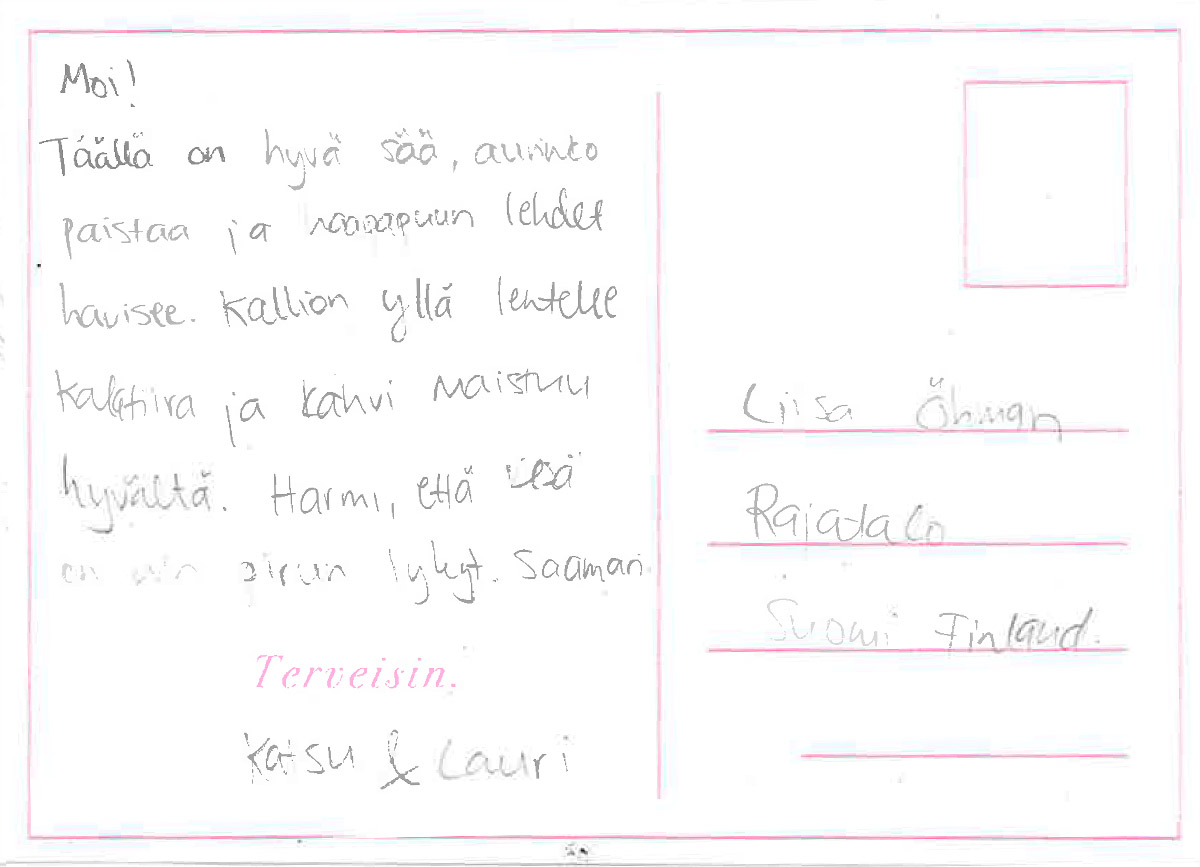 Moi!
Täällä on hyvä sää, aurinko
paistaa ja haaaapuun lehdet
havisee. Kallion yllä lentelee
kalatiira ja kahvi maistuu
hyvältä. Harmi, että isä
on niin pirun lyhyt. Saamari.
Terveisin.
Katsu & Lauri
Liisa Öhman
Rajatalo
Suomi Finland.